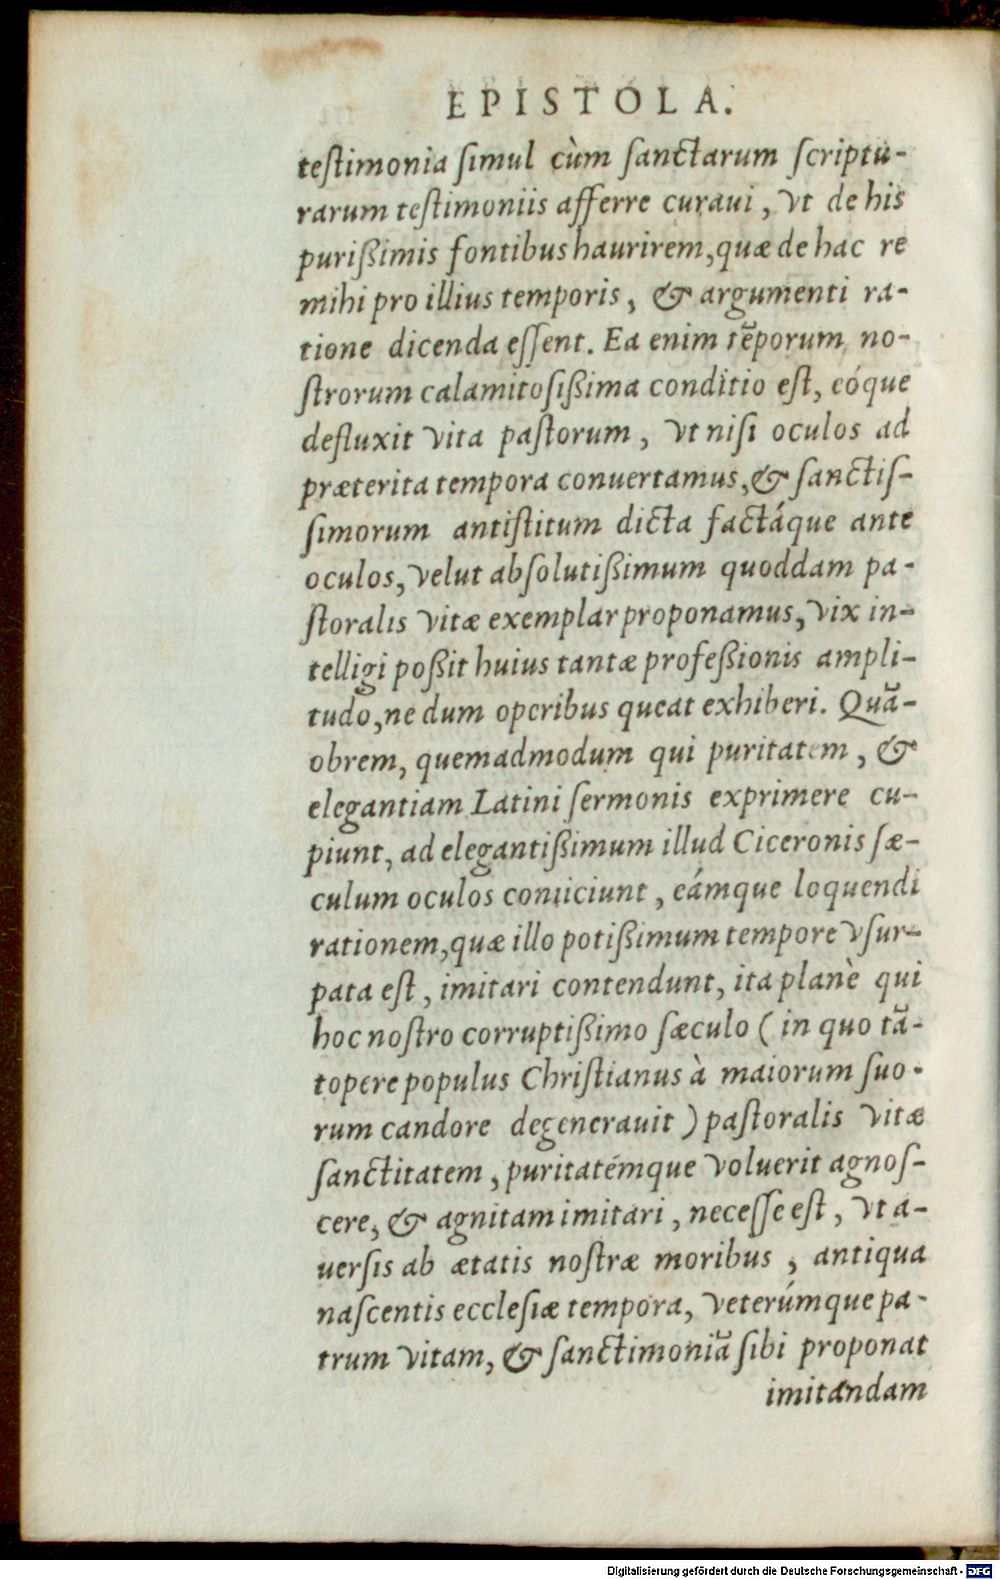 EPISTOLA.
teſtimonia ſimul cùm ſanctarum ſcriptu-
rarum teſtimoniis afferre curaui, vt de his
purißimis fontibus haurirem, quæ de hac re
mihi pro illius temporis, & argumenti ra-
tione dicenda eſſent. Ea enim tẽporum no-
ſtrorum calamitoſißima conditio eſt, eóque
defluxit vita paſtorum, vt niſi oculos ad
præterita tempora conuertamus, & ſanctiſ-
ſimorum antiſtitum dicta factáque ante
oculos, velut abſolutißimum quoddam pa-
ſtoralis vitæ exemplar proponamus, vix in-
telligi poßit huius tantæ profeßionis ampli-
tudo, ne dum operibus queat exhiberi. Quã-
obrem, quemadmodum qui puritatem, &
elegantiam Latini ſermonis exprimere cu-
piunt, ad elegantißimum illud Ciceronis ſæ-
culum oculos coniiciunt, eámque loquendi
rationem, quæ illo potißimum tempore vſur-
pata eſt, imitari contendunt, ita planè qui
hoc noſtro corruptißimo ſæculo (in quo tã-
topere populus Chriſtianus à maiorum ſuo-
rum candore degenerauit) paſtoralis vitæ
ſanctitatem, puritatémque voluerit agnoſ-
cere, & agnitam imitari, neceſſe eſt, vt a-
uerſis ab ætatis noſtræ moribus, antiqua
naſcentis eccleſiæ tempora, veterúmque pa-
trum vitam, & ſanctimoniã ſibi proponat
imitandam
Digitalisierung gefördert durch die Deutsche Forschungsgemeinschaft - DFG